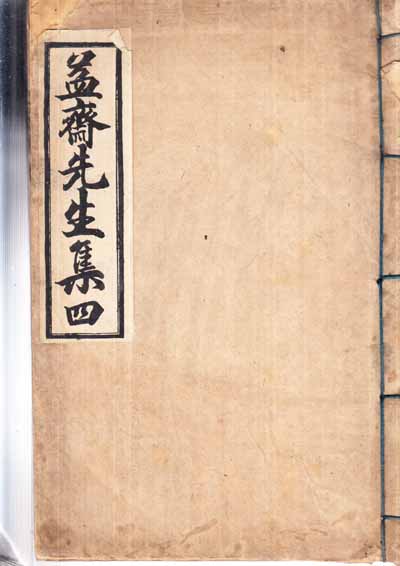 益齋先生集四